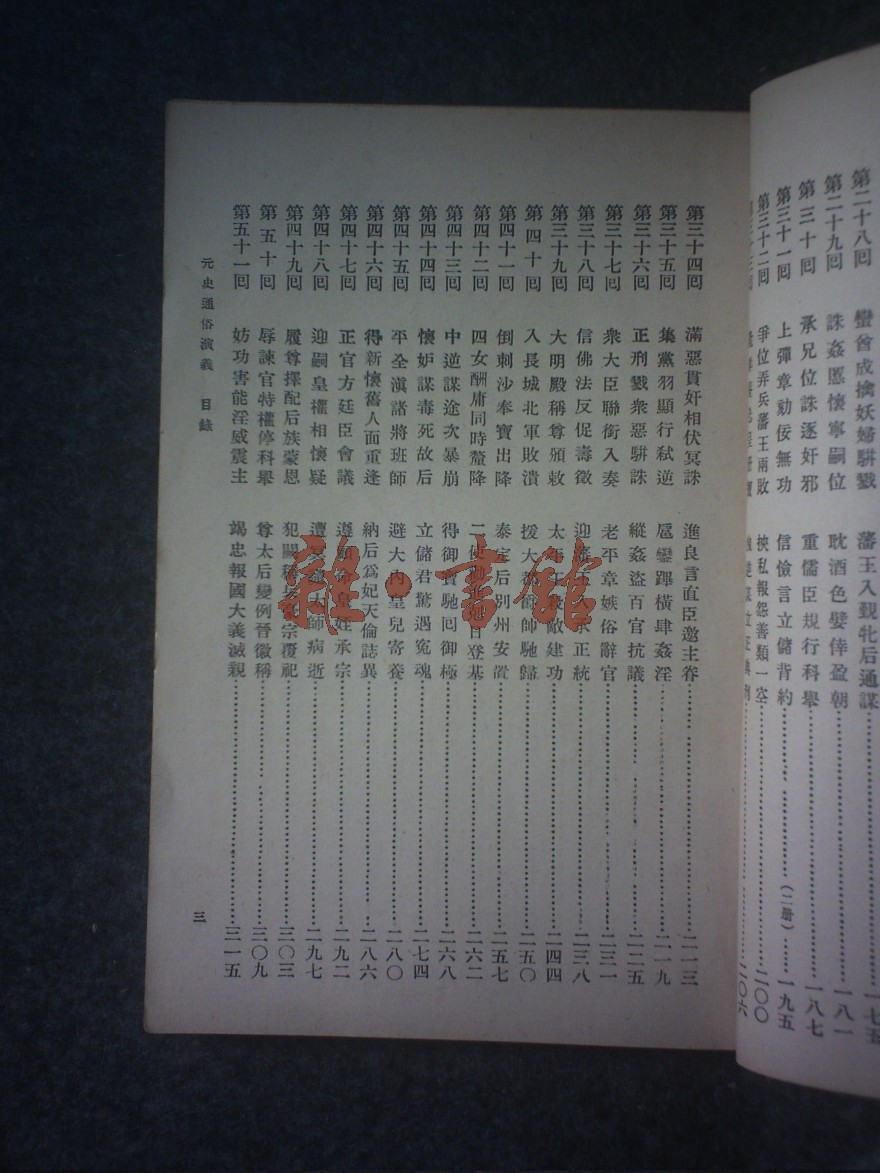 第二十八囘 蠻酋成擒妖婦騈戮 藩王入覲牝后通謀 一七五
第二十九囘 誅姦慝懷寧嗣位 耽酒色嬖倖盈朝 一八一
第三十囘 承兄位誅逐奸邪 重儒臣規行科舉 一八七
第三十一囘 上彈章劾佞無功 信儉言立儲背約 (二册) 一九五
第三十二囘 爭位弄兵藩王兩敗 挾私報怨善類一空 二〇〇
二〇六
第三十四囘 滿惡貫奸相伏冥誅 進良言直臣邀主眷 二一三
第三十五囘 集黨羽顯行弑逆 扈鑾蹕橫肆姦淫 二一九
第三十六囘 正刑戮衆惡騈誅 縱姦盜百官抗議 二二五
第三十七囘 衆大臣聯銜入奏 老平章嫉俗辭官 二三一
第三十八囘 信佛法反促壽徵 迎藩王入承正統 二三八
第三十九囘 大明殿稱尊頒敕 太平王殺敵建功 二四四
第四十囘 入長城北軍敗潰 援大都爵帥馳歸 二五〇
第四十一囘 倒刺沙奉寶出降 泰定后別州安置 二五七
第四十二囘 四女酬庸同時釐降 二使勸進克日登基 二六二
第四十三囘 中逆謀途次暴崩 得御寶馳囘御極 二六八
第四十四囘 懷妒謀毒死故后 立儲君驚遇冤魂 二七四
第四十五囘 平全滇諸將班師 避大內皇兒寄養 二八〇
第四十六囘 得新懷舊人面重逢 納后爲妃天倫誌異 二八六
第四十七囘 正官方廷臣會議 遵顧命皇姪承宗 二九二
第四十八囘 迎嗣皇權相懷疑 遭冥譴太師病逝 二九七
第四十九囘 履尊擇配后族蒙恩 犯闕稱兵豪宗覆祀 三〇三
第五十囘 辱諫官特權停科舉 尊太后變例晉徽稱 三〇九
第五十一囘 妨功害能淫威震主 竭忠報國大義滅親 三一五
元史通俗演義 目錄
三
雜·書館